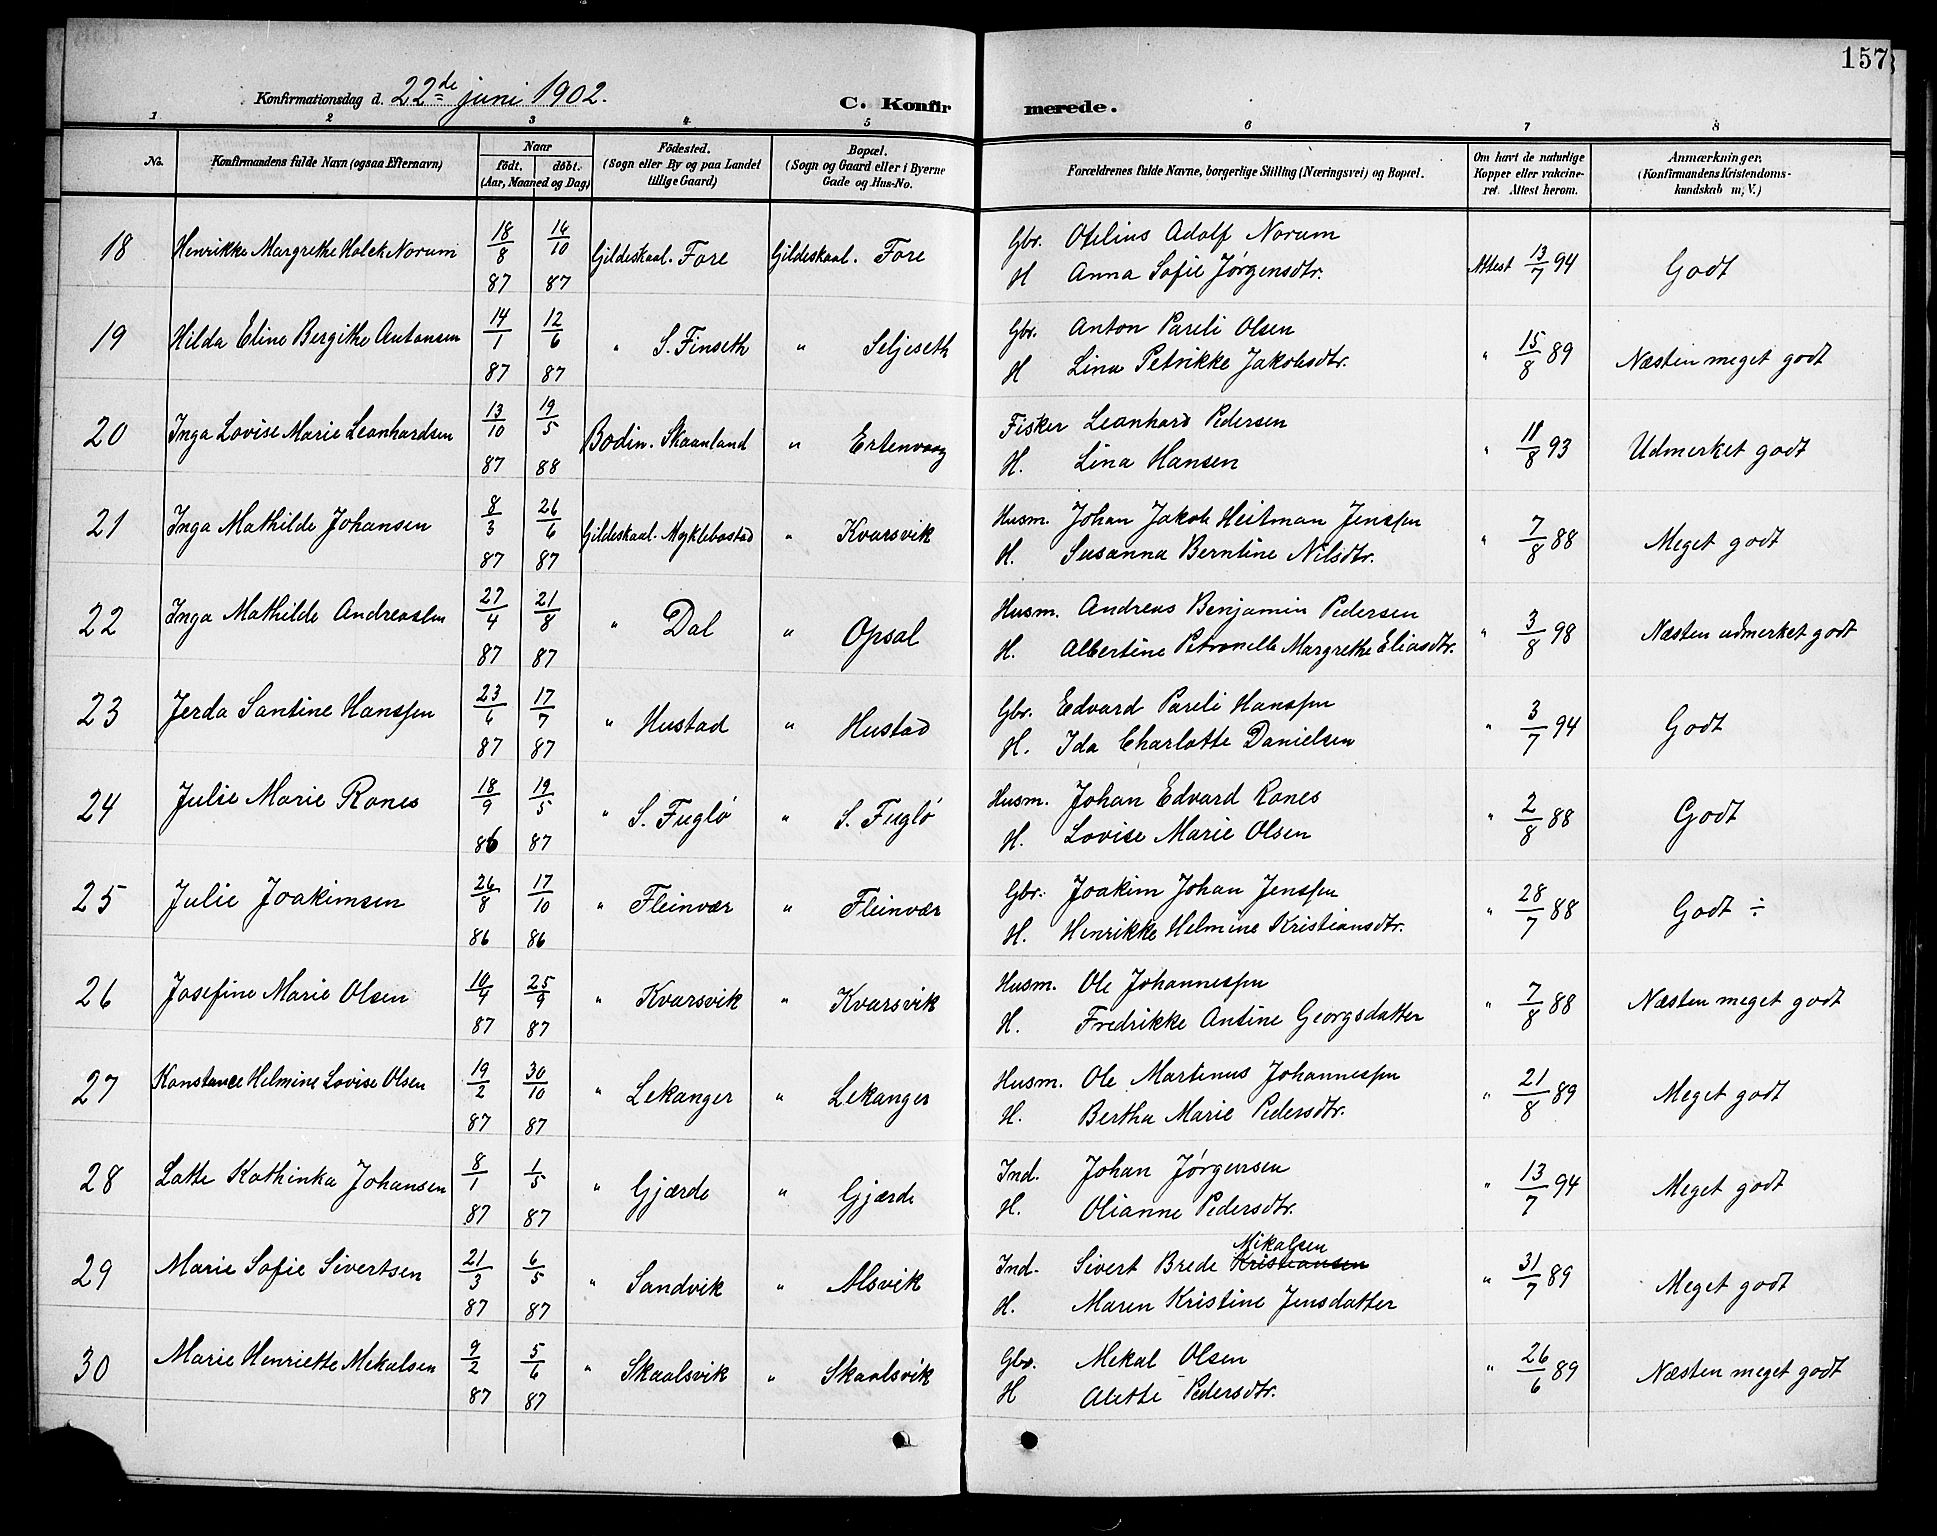 157
Konfirmationsdag d. 22de juni 1902. C. Konfirmerede.
1 2 3 4 5 6 7 8
No. Konfirmandens fulde Navn (ogsaa Efternavn) Naar født. døbt. (Aar, Maaned og Dag) Fødested. (Sogn eller By og paa Landet tillige Gaard) Bopæl. (Sogn og Gaard eller i Byerne Gade og Hus-No. Forældrenes fulde Navne, borgerlige Stilling (Næringsvei) og Bopæl. Om havt de naturlige Kopper eller vakcineret. Attest herom. Anmærkninger. (Konfirmandens Kristendomskundskab m. V.)
18 Henrikke Margrethe Holck Norum 18/8 87 16/10 87 Gildeskaal. Fore Gildeskaal. Fore Gbr. Otelius Adolf Norum Attest 13/7 94 Godt
H Anna Sofie Jørgensdtr.
19 Hilda Eline Bergithe Antonsen 14/1 87 12/6 87 " S. Finseth " Seljeseth Gbr. Anton Pareli Olsen " 15/8 89 Næsten meget godt
H Lina Petrikke Jakobsdtr.
20 Inga Lovise Marie Leonhardsen 13/10 87 19/5 88 Bodin. Skaanland " Ertenvaag Fisker Leonhard Pedersen " 18/8 93 Udmerket godt
H. Lina Hansen
21 Inga Mathilde Johansen 8/3 87 26/6 87 Gildeskaal. Myklebostad " Kvarsvik Husm. Johan Jakob Heitman Jenssen " 7/8 88 Meget godt
H. Susanna Berntine Nilsdtr.
22 Inga Mathilde Andreassen 27/4 87 21/8 87 " Dal " Opsal Husm. Andreas Benjamin Pedersen " 3/8 98 Næsten udmerket godt
H. Albertine Petronella Margrethe Eliasdtr.
23 Jerda Santine Hanssen 23/6 87 17/7 87 " Hustad " Hustad Gbr. Edvard Pareli Hanssen " 3/7 94 Godt
H. Ida Charlotte Danielsen
24 Julie Marie Rones 18/9 86 19/5 87 " S. Fuglø " S. Fuglø Husm. Johan Edvard Rones " 2/8 88 Godt
H. Lovise Marie Olsen
25 Julie Joakimsen 26/8 86 17/10 86 " Fleinvær " Fleinvær Gbr. Joakim Johan Jenssen " 28/7 88 Godt ÷
H. Henrikke Helmine Kristiansdtr.
26 Josefine Marie Olsen 10/4 87 25/9 87 " Kvarsvik " Kvarsvik Husm. Ole Johannessen " 7/8 88 Næsten meget godt
H. Fredrikke Antine Georgsdatter
27 Konstance Helmine Lovise Olsen 19/2 87 30/10 87 " Lekanger " Lekanger Husm. Ole Martinus Johannessen " 21/8 89 Meget godt
H. Bertha Marie Pedersdtr.
28 Lotte Kathinka Johansen 8/1 87 1/5 87 " Gjærde " Gjærde Ind. Johan Jørgensen " 13/7 94 Meget godt
H. Olianne Pedersdtr.
29 Marie Sofie Sivertsen 21/3 87 6/5 87 " Sandvik " Alsvik Ind. Sivert Brede Kristiansen Mikalsen " 31/7 89 Meget godt
H. Maren Kristine Jensdatter
30 Marie Henriette Mekalsen 9/2 87 5/6 87 " Skaalsvik " Skaalsvik Gbr. Mekal Olsen " 26/6 89 Næsten meget godt
H Alette Pedersdtr.